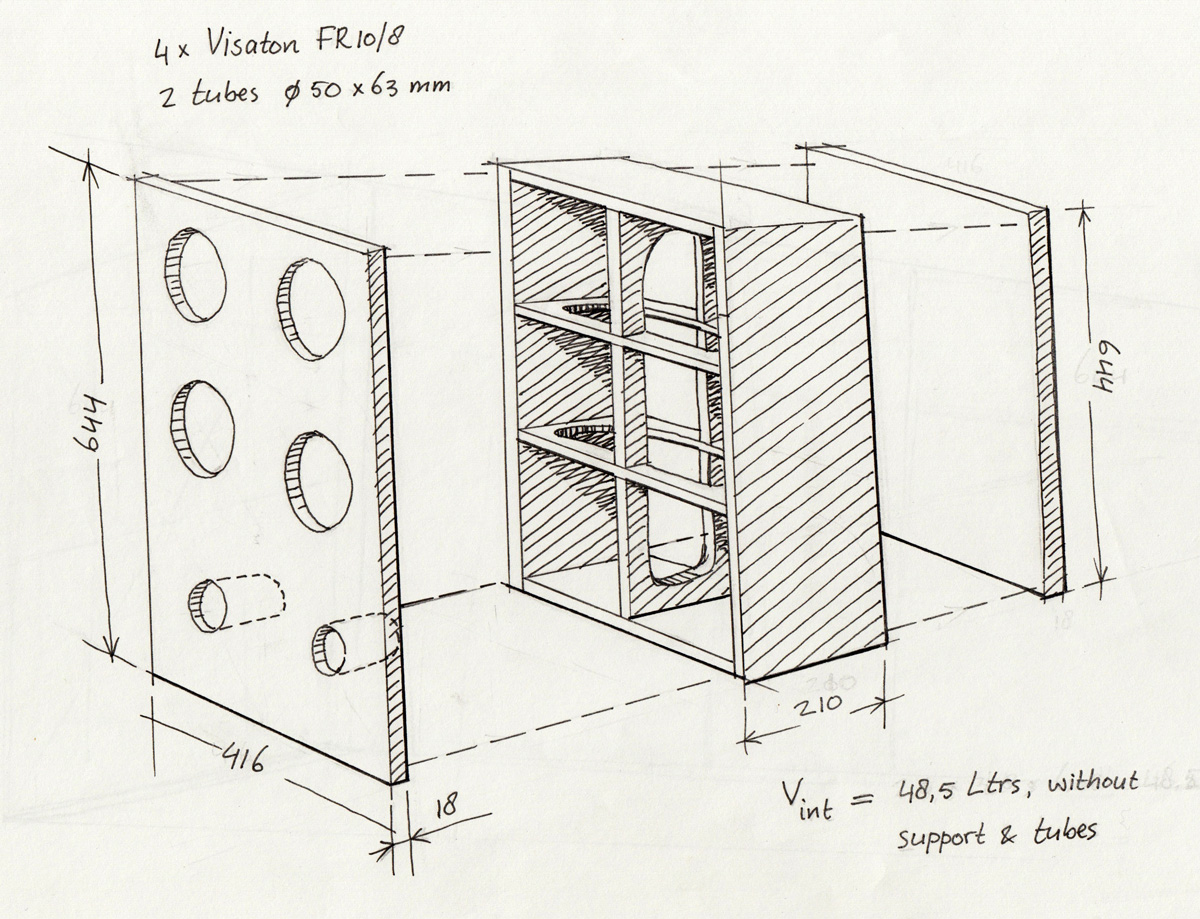 4x Visaton FR10/8
2 tubes ø 50 x 63 mm
644
644
416
18
210
Vint = 48,5 Ltrs, without
support & tubes